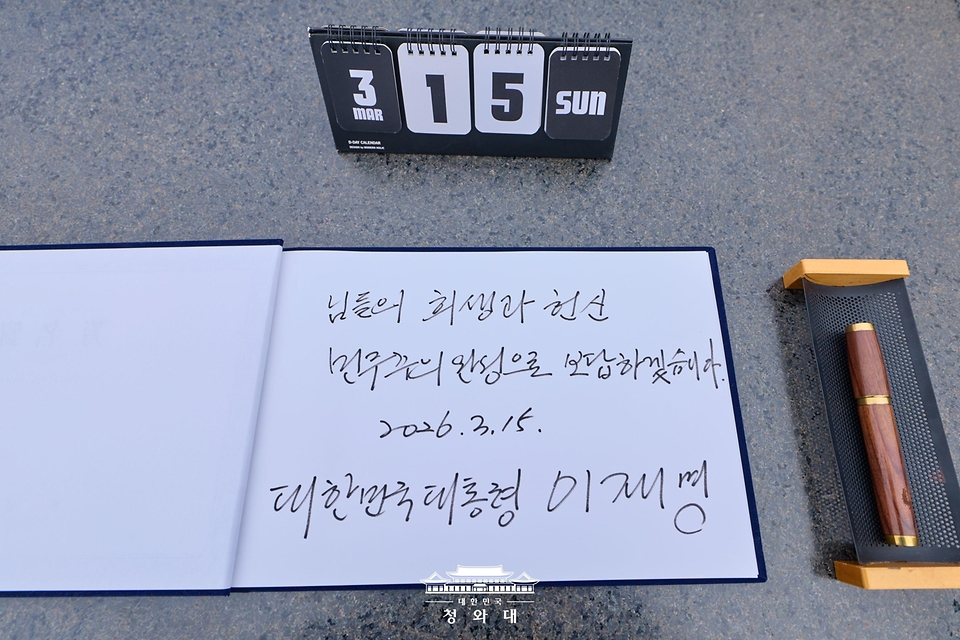 3
MAR
1
5
SUN
D-DAY CALENDAR
님들의 희생과 헌신
민주주의 완성으로 보답하겠습니다.
2026.3.15.
대한민국 대통령 이재명
대한민국
청와대